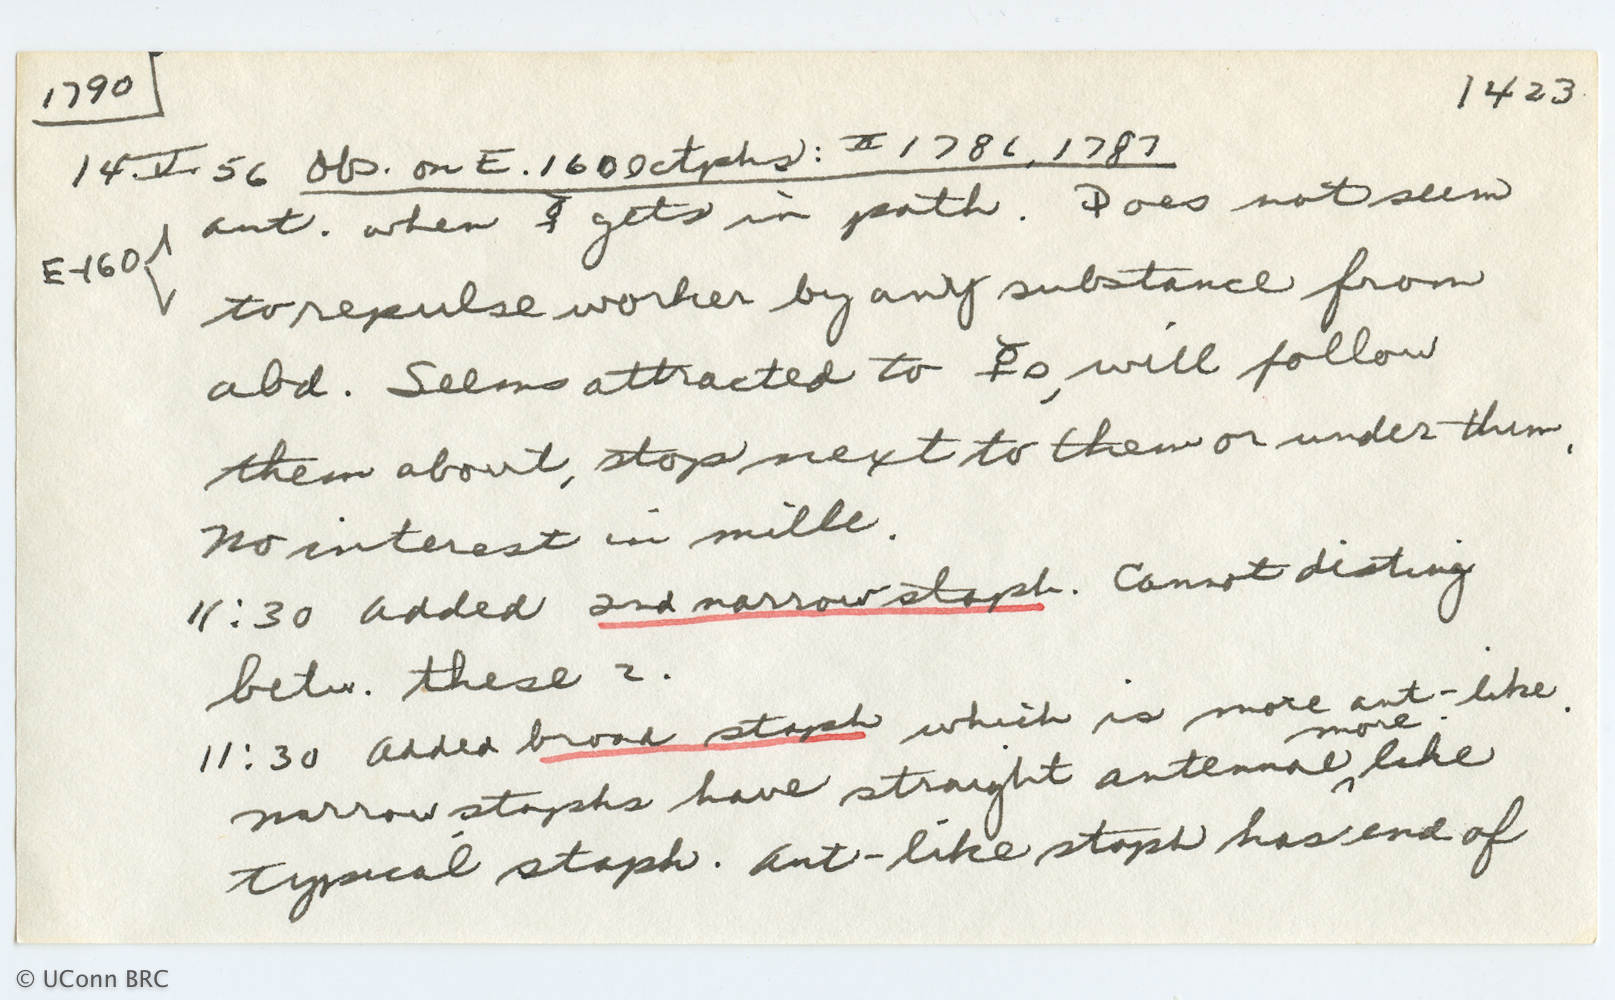 1790
1423
14.V.56 Obs. on E.160 ectphs: II 1786, 1787
E-160 { ant. when ☿ gets in path. Does not seem
to repulse worker by any substance from
abd. Seems attracted to ☿s, will follow
them about, stop next to them or under them.
No interest in mille.
11:30 Added 2nd narrow staph. Cannot disting
betw. these 2.
11:30 Added broad staph which is more ant-like.
narrow staphs have straight antennae, more like
typical staph. Ant-like staph has end of
© UConn BRC